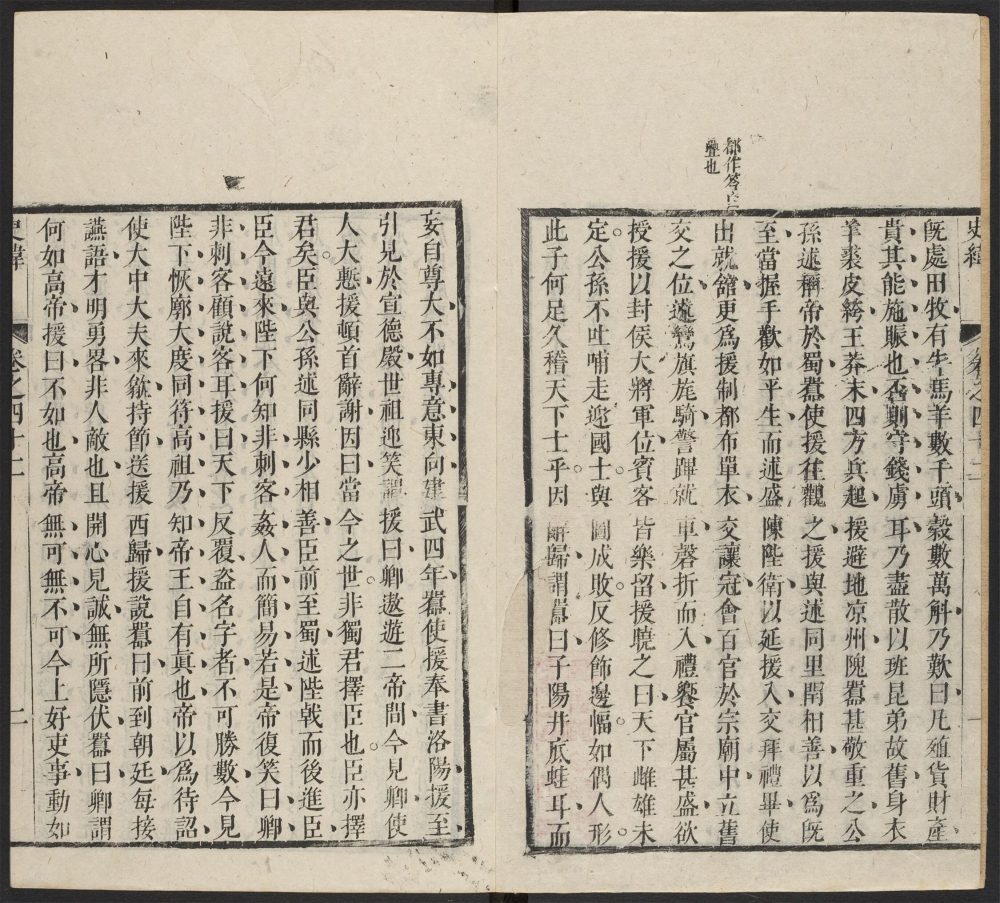 史緯
卷之四十二
一
都作答
疊也
既處田牧有牛馬羊數千頭穀數萬斛乃歎曰凡殖貨財產
貴其能施賑也否則守錢虜耳乃盡散以班昆弟故舊身衣
羊裘皮絝王莽末四方兵起援避地凉州隗囂甚敬重之公
孫述稱帝於蜀囂使援往觀之援與述同里閈相善以爲既
至當握手歡如平生而述盛陳陛衛以延援入交拜禮畢使
出就舘更爲援制都布單衣交讓冠會百官於宗廟中立舊
交之位述鸞旗旄騎警蹕就車磬折而入禮饗官屬甚盛欲
授援以封侯大將軍位賓客皆樂留援曉之曰天下雌雄未
定公孫不吐哺走迎國士與圖成敗反修飾邊幅如偶人形
此子何足久稽天下士乎因辭歸謂囂曰子陽井底蛙耳而
妄自尊大不如專意東向建武四年囂使援奉書洛陽援至
引見於宣德殿世祖迎笑謂援曰卿遨遊二帝間今見卿使
人大慙援頓首辭謝因曰當今之世非獨君擇臣也臣亦擇
君矣臣與公孫述同縣少相善臣前至蜀述陛戟而後進臣
臣今遠來陛下何知非刺客姦人而簡易若是帝復笑曰卿
非刺客顧說客耳援曰天下反覆盗名字者不可勝數今見
陛下恢廓大度同符高祖乃知帝王自有真也帝以爲待詔
使大中大夫來歙持節送援西歸援說囂曰前到朝廷每接
讌語才明勇畧非人敵也且開心見誠無所隱伏囂曰卿謂
何如高帝援曰不如也高帝無可無不可今上好吏事動如
史緯
卷之四十二
二